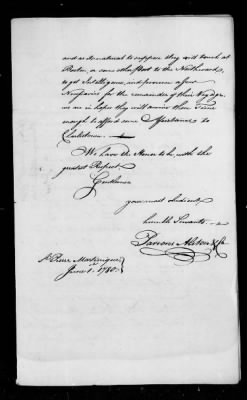 and as its natural to suppose they will touch at
Boston, or some other Port to the Northward,
to get Intelligence, and procure a few
Necessaries for the remainder of their Voyage,
we are in hopes they will arrive there Time
enough to afford some Assistance to
Charlestown.
We have the Honor to be, with the
greatest Respect
Gentlemen
your most Obedient,
humble Servants
Parsons Alston & Co.
St. Pierre Martinique
June 1st. 1780.